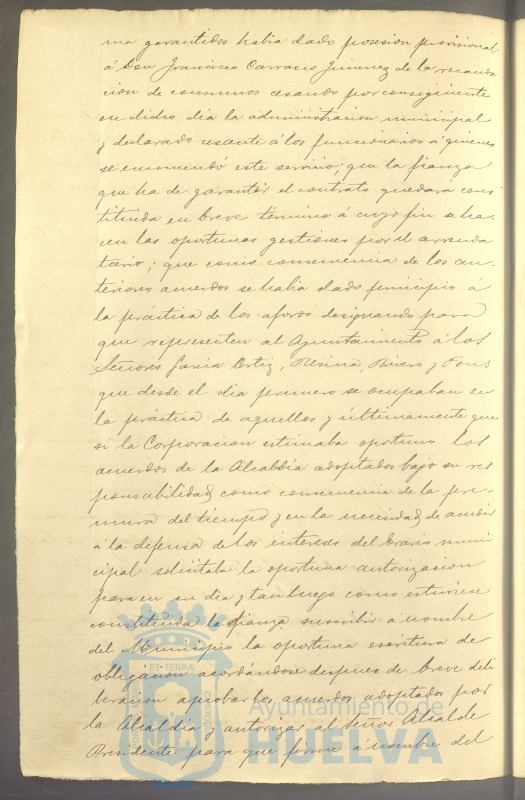 ma garantidos habia dado posesion provisional
á Don Francisco Carrasco Jimenez de la recauda
cion de consumos cesando por consiguiente
en dicho dia la administracion municipal
y declarado cesante á los funcionarios á quienes
se encomendó este servicio: que la fianza
que ha de garantir el contrato quedará cons
tituida en breve término á cuyo fin se ha-
cen las oportunas gestiones por el arrenda
tario; que como consecuencia de los an-
teriores acuerdos se habia dado principio á
la práctica de los aforos designando para
que representen al Ayuntamiento á los
Señores Garcia Ortiz, Resina, Rivero y Pons
que desde el dia primero se ocupaban en
la práctica de aquellos y últimamente que
si la Corporacion estimaba oportuno los
acuerdos de la Alcaldia adoptados bajo su res
ponsabilidad como consecuencia de la pre-
mura del tiempo y en la necesidad de acudir
á la defensa de los intereses del Erario muni
cipal solicitaba la oportuna autorizacion
para en su dia y tan luego como estuviese
constituida la fianza suscribir á nombre
del Municipio la oportuna escritura de
obligacion acordándose despues de breve deli
beracion aprobar los acuerdos adoptados por
la Alcaldia y autorizar al Señor Alcalde
Presidente para que firme á nombre del
ET TERRÆ
Ayuntamiento de
HUELVA